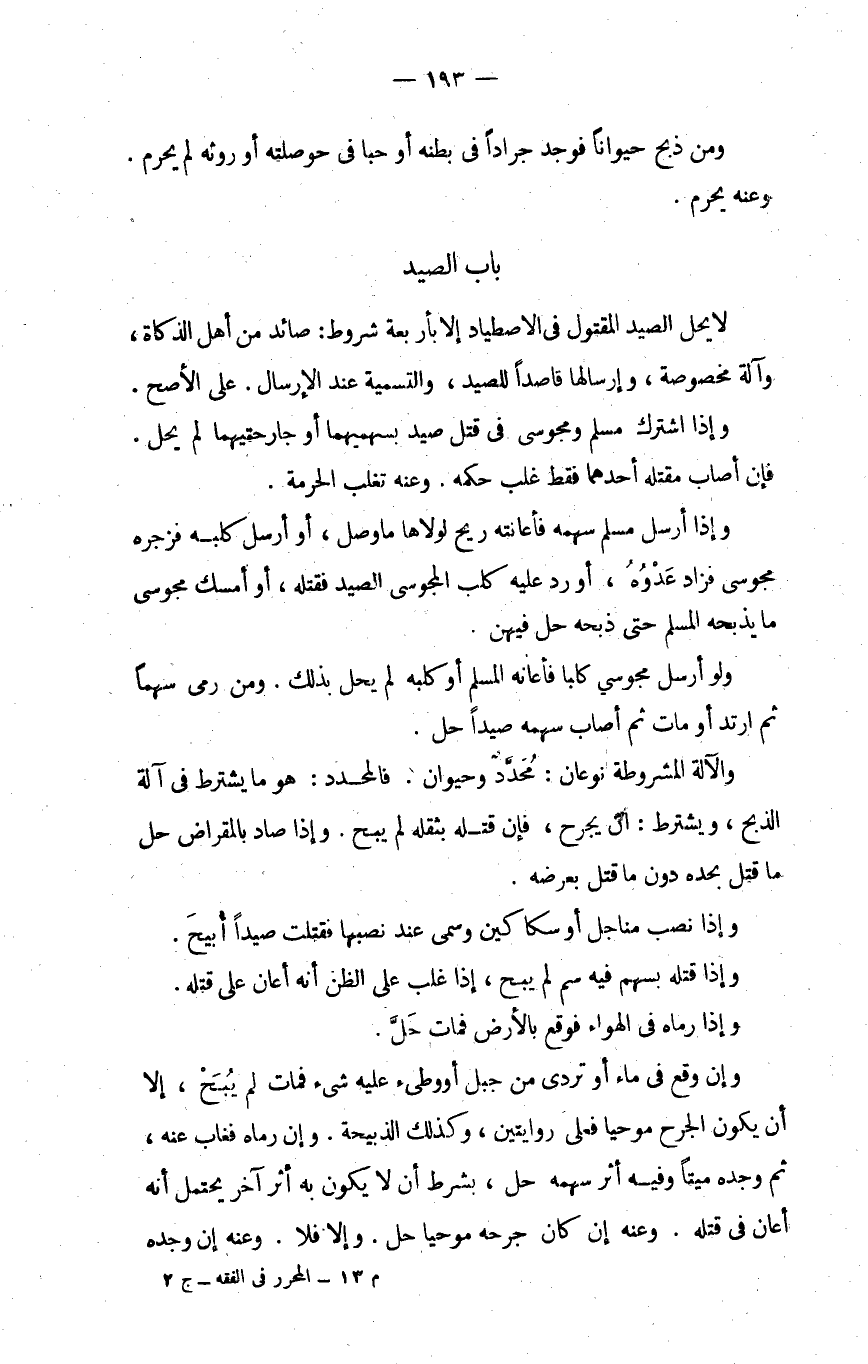 — ١٩٣ —
ومن ذبح حيواناً فوجد جراداً فى بطنه أو حبا فى حوصلته أو روثه لم يحرم .
وعنه يحرم .
باب الصيد
لا يحل الصيد المقتول فى الاصطياد إلا بأربعة شروط : صائد من أهل الذكاة ،
وآلة مخصوصة ، وإرسالها قاصداً للصيد ، والتسمية عند الإرسال . على الأصح .
وإذا اشترك مسلم ومجوسى فى قتل صيد بسهميهما أو جارحتيهما لم يحل .
فإن أصاب مقتله أحدهما فقط غلب حكمه . وعنه تغلب الحرمة .
وإذا أرسل مسلم سهمه فأعانته ريح لولاها ماوصل ، أو أرسل كلبه فزجره
مجوسى فزاد عَدْوُهُ ، أو رد عليه كلب المجوسى الصيد فقتله ، أو أمسك مجوسى
ما يذبحه المسلم حتى ذبحه حل فيهن .
ولو أرسل مجوسي كلبا فأعانه المسلم أو كلبه لم يحل بذلك . ومن رمى سهماً
ثم ارتد أو مات ثم أصاب سهمه صيداً حل .
والآلة المشروطة نوعان : مُحَدَّد وحيوان . فالمحدد : هو ما يشترط فى آلة
الذبح ، ويشترط : أن يجرح ، فإن قتله بثقله لم يبح . وإذا صاد بالمقراض حل
ما قتل بحده دون ما قتل بعرضه .
وإذا نصب مناجل أو سكاكين وسمى عند نصبها فقتلت صيداً أبيحَ .
وإذا قتله بسهم فيه سم لم يبح ، إذا غلب على الظن أنه أعان على قتله .
وإذا رماه فى الهواء فوقع بالأرض فمات حَلَّ .
وإن وقع فى ماء أو تردى من جبل أووطىء عليه شىء فمات لم يُبَحْ ، إلا
أن يكون الجرح موحيا فعلى روايتين ، وكذلك الذبيحة . وإن رماه فغاب عنه ،
ثم وجده ميتاً وفيه أثر سهمه حل ، بشرط أن لا يكون به أثر آخر يحتمل أنه
أعان فى قتله . وعنه إن كان جرحه موحيا حل . وإلا فلا . وعنه إن وجده
م ١٣ – المحرر فى الفقه – ج ٢